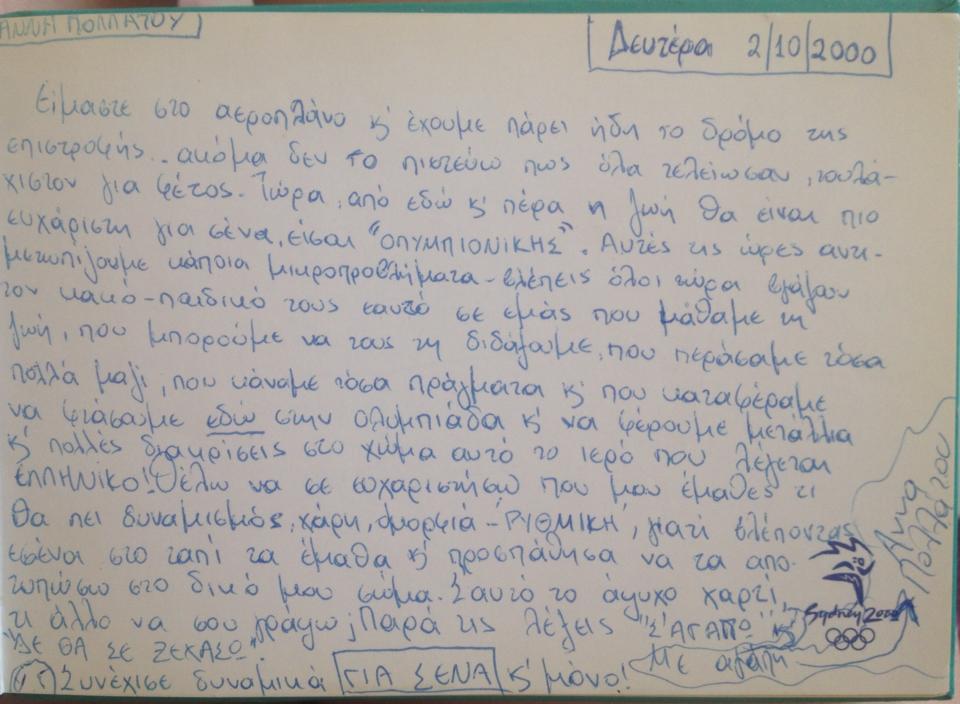 ΑΝΝΑ ΠΟΛΛΑΤΟΥ
Δευτέρα 2/10/2000
Είμαστε στο αεροπλάνο κ' έχουμε πάρει ήδη το δρόμο της
επιστροφής.. ακόμα δεν το πιστεύω πως όλα τελείωσαν, τουλά-
χιστον για φέτος. Τώρα, από εδώ κ' πέρα η ζωή θα είναι πιο
ευχάριστη για σένα, είσαι "ΟΛΥΜΠΙΟΝΙΚΗΣ". Αυτές τις ώρες αντι-
μετωπίζουμε κάποια μικροπροβλήματα - βλέπεις όλοι τώρα βγάζουν
τον κακό-παιδικό τους εαυτό σε εμάς που μάθαμε τη
ζωή, που μπορούμε να τους τη διδάξουμε, που περάσαμε τόσα
πολλά μαζί, που κάναμε τόσα πράγματα κ' που καταφέραμε
να φτάσουμε εδώ στην ολυμπιάδα κ' να φέρουμε μετάλλια
κ' πολλές διακρίσεις στο χώμα αυτό το ιερό που λέγεται
ΕΛΛΗΝΙΚΟ! Θέλω να σε ευχαριστήσω που μου έμαθες τι
θα πει δυναμισμός, χάρη, ομορφιά - 'ΡΥΘΜΙΚΗ', γιατί βλέποντας
εσένα στο ταπί τα έμαθα κ' προσπάθησα να τα απο-
τυπώσω στο δικό μου σώμα. Σ'αυτό το άψυχο χαρτί,
τι άλλο να σου γράψω; Παρά τις λέξεις "Σ'ΑΓΑΠΩ" κ'
"ΔΕ ΘΑ ΣΕ ΞΕΧΑΣΩ".
Συνέχισε δυναμικά ΓΙΑ ΣΕΝΑ κ' μόνο!
Με αγάπη
Άννα
Πολλάτου
Sydney 2000